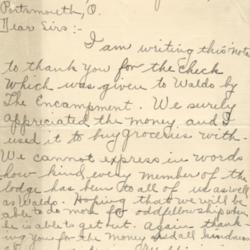 Portsmouth, O.
Dear Sirs:-
I am writing this note
to thank you for the check
which was given to Waldo by
The Encampment. We surely
appreciated the money, and I
used it to buy groceries with.
We cannot express in words
how kind every member of the
lodge has been to all of us as well
as Waldo. Hoping that we will be
able to do more for oddfellowship when
he is able to get out. Again thank-
ing you for the money and all kindness